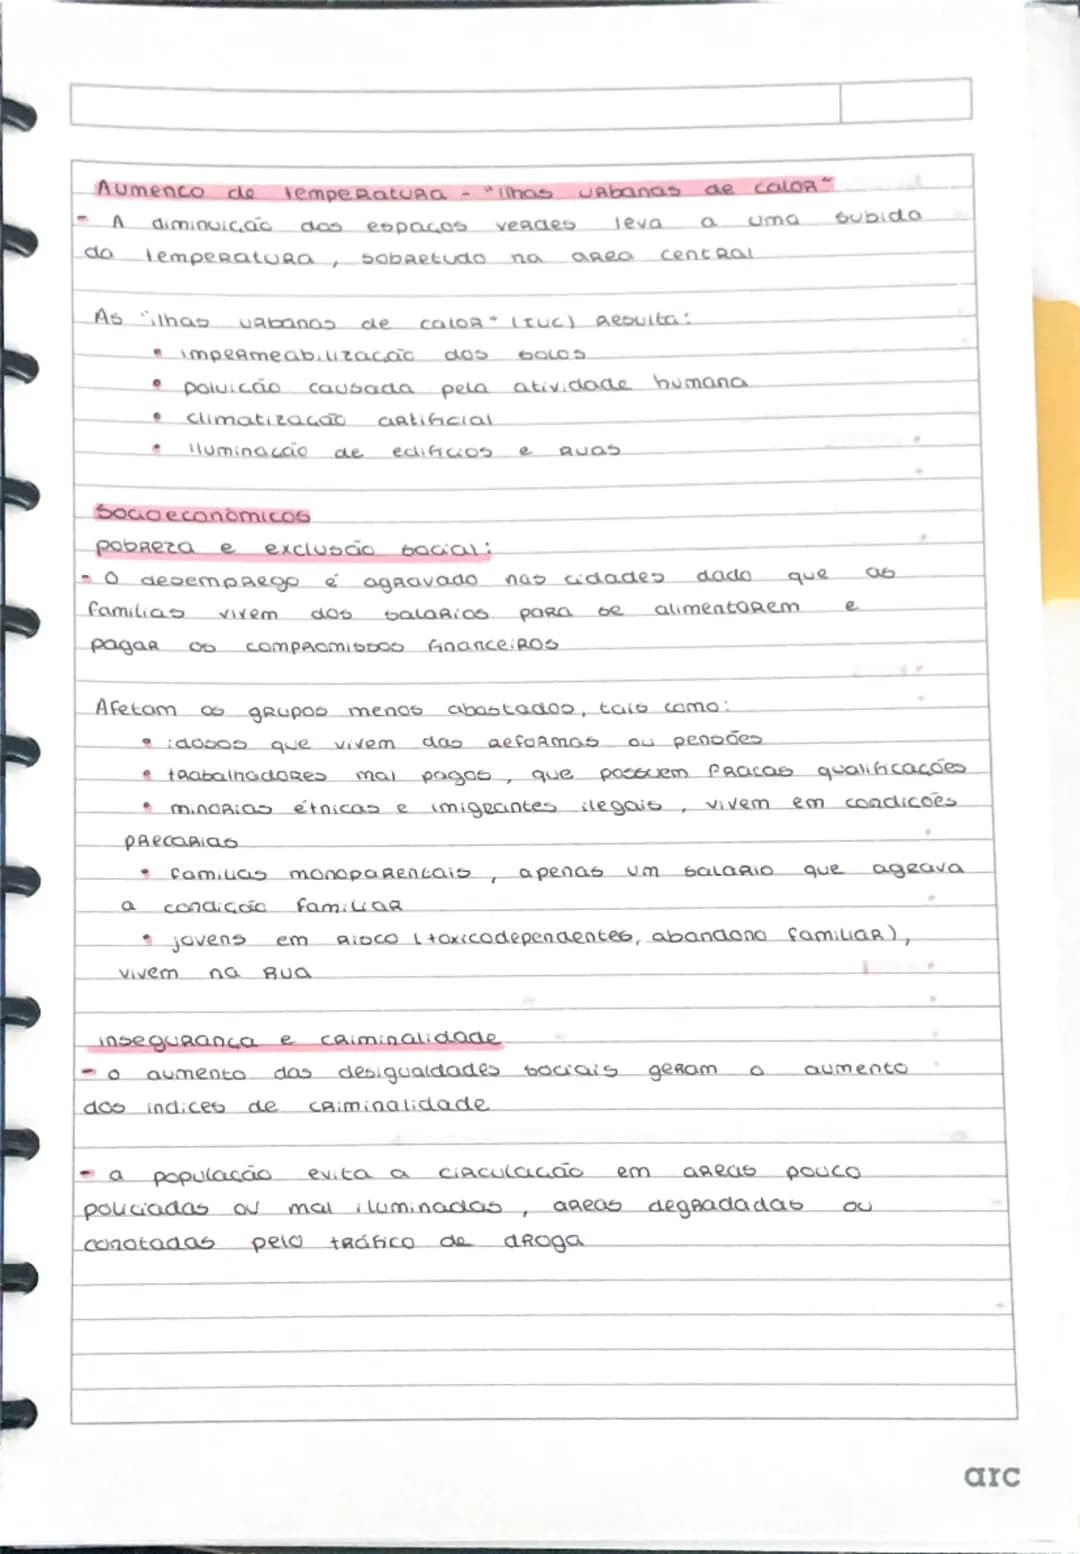 Aumento de temperatura - "ilhas urbanas de calor"
- A diminuição dos espaços verdes leva a uma subida
da temperatura, sobretudo na area central
As "ilhas urbanas de calor" (IUC) resulta:
• impermeabilização dos solos
• poluição causada pela atividade humana
• climatização artificial
• iluminação de edificios e ruas
Socioeconómicos
pobreza e exclusão social:
- O desemprego é agravado nas cidades dado que as
familias vivem dos salarios para se alimentarem e
pagar os compromissos financeiros
Afetam os grupos menos abastados, tais como:
• idosos que vivem das reformas ou pensões
• trabalhadores mal pagos, que possuem fracas qualificações
• minorias étnicas e imigrantes ilegais, vivem em condições
precarias
• familias monoparentais, apenas um salario que agrava
a condição familiar
• jovens em risco (toxicodependentes, abandono familiar),
vivem na rua
insegurança e criminalidade
- o aumento das desigualdades sociais geram o aumento
dos indices de criminalidade
- a população evita a circulação em areas pouco
policiadas ou mal iluminadas, areas degradadas ou
conotadas pelo tráfico de droga
arc